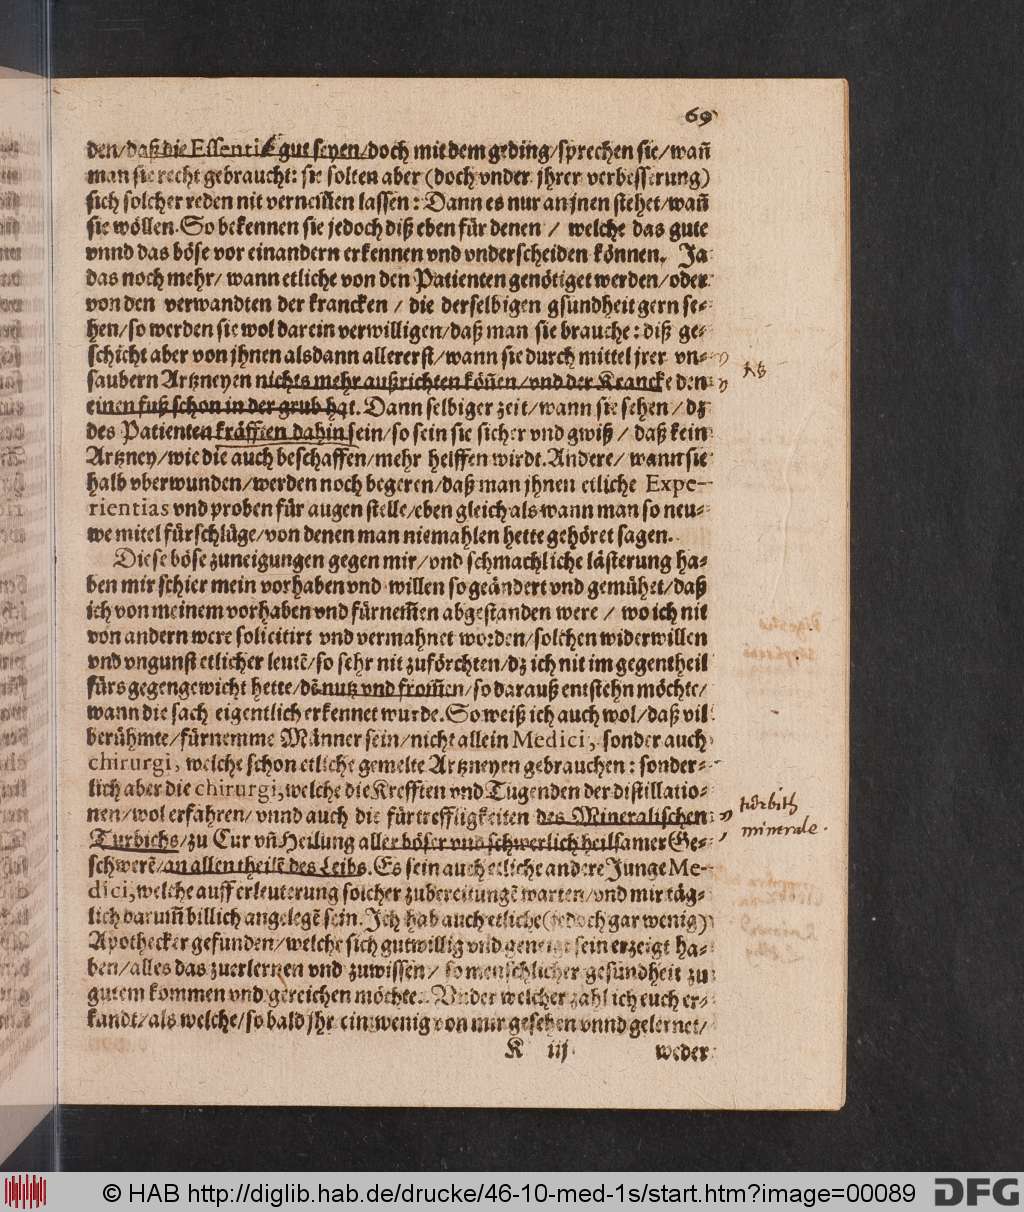 69
den/daß die Essentiæ gut seyen/doch mit dem geding/sprechen sie/wañ
man sie recht gebraucht: sie solten aber (doch vnder jhrer verbesserung)
sich solcher reden nit vernem̃en lassen: Dann es nur an jnen stehet/wañ
sie wöllen. So bekennen sie jedoch diß eben für denen / welche das gute
vnnd das böse vor einandern erkennen vnd vnderscheiden können. Ja
das noch mehr/ wann etliche von den Patienten genötiget werden/oder
von den verwandten der krancken / die derselbigen gsundheit gern se-
hen/so werden sie wol darein verwilligen/daß man sie brauche: diß ge-
schicht aber von jhnen alsdann allererst/wann sie durch mittel jrer vn-
saubern Artzneyen nichts mehr außrichten köñen/vnd der Krancke den
NB
einen fuß schon in der grub hat. Dann selbiger zeit/wann sie sehen / dz
des Patienten kräfften dahin sein/so sein sie sicher vnd gwiß / daß kein
Artzney/wie die auch beschaffen/mehr helffen wirdt. Andere/ wann sie
halb vberwunden/werden noch begeren/daß man jhnen etliche Expe-
rientias vnd proben für augen stelle/eben gleich als wann man so neu-
we mitel fürschlüge/von denen man niemahlen hette gehöret sagen.
Diese böse zuneigungen gegen mir/vnd schmachliche lästerung ha-
ben mir schier mein vorhaben vnd willen so geändert vnd gemühet/daß
ich von meinem vorhaben vnd fürnem̃en abgestanden were / wo ich nit
von andern were solicitirt vnd vermahnet worden/solchen widerwillen
vnd vngunst etlicher leutẽ/so sehr nit zuförchten/dz ich nit im gegentheil
fürs gegengewicht hette/dẽ nutz vnd from̃en/so darauß entstehn möchte/
wann die sach eigentlich erkennet wurde. So weiß ich auch wol/daß vil
berühmte/fürnemme Männer sein/nicht allein Medici, sonder auch
chirurgi, welche schon etliche gemelte Artzneyen gebrauchen: sonder-
lich aber die chirurgi, welche die Krefften vnd Tugenden der distillatio-
nen/wol erfahren/ vnnd auch die fürtreffligkeiten des Mineralischen
Turbichs/zu Cur vñ Heilung aller böser vnd schwerlich heilsamer Ge-
turbith
minerale.
schwerẽ/an allen theilẽ des Leibs. Es sein auch etliche andere Junge Me-
dici, welche auff erleuterung solcher zubereitungẽ warten/vnd mir täg-
lich darum̃ billich angelegẽ sein. Ich hab auch etliche (jedoch gar wenig)
Apothecker gefunden/welche sich gutwillig vnd geneigt sein erzeigt ha-
ben/alles das zuerlernen vnd zuwissen/ so menschlicher gesundheit zu
gutem kommen vnd gereichen möchte. Vnder welcher zahl ich euch er-
kandt/als welche/so bald jhr ein wenig von mir gesehen vnnd gelernet/
K iij weder
© HAB http://diglib.hab.de/drucke/46-10-med-1s/start.htm?image=00089
DFG